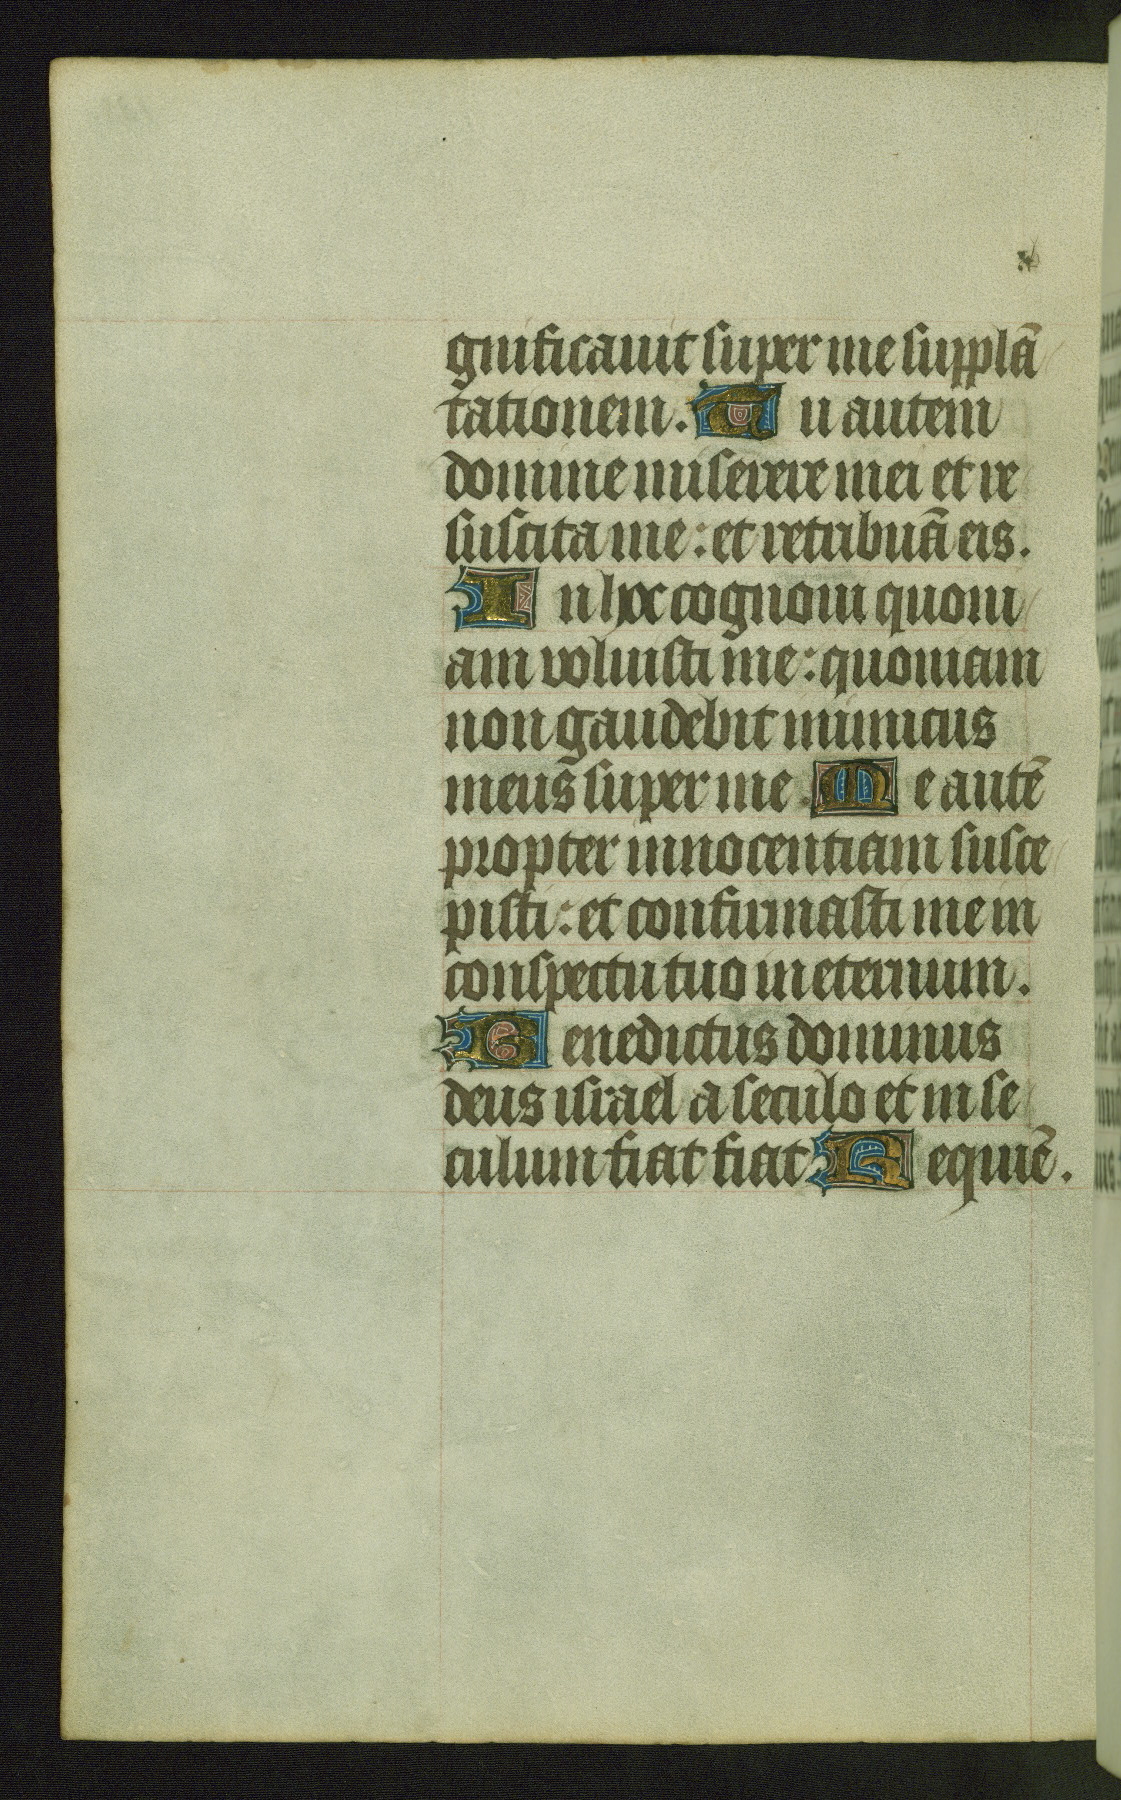 gnificauit super me supplā
tationem. Tu autem
domine miserere mei et re
suscita me: et retribuā eis.
In hoc cognoui quoni
am voluisti me: quoniam
non gaudebit inimicus
meus super me. Me autē
propter innocentiam susce
pisti: et confirmasti me in
conspectu tuo in eternum.
Benedictus dominus
deus israel a seculo et in se
culum fiat fiat Requiē.